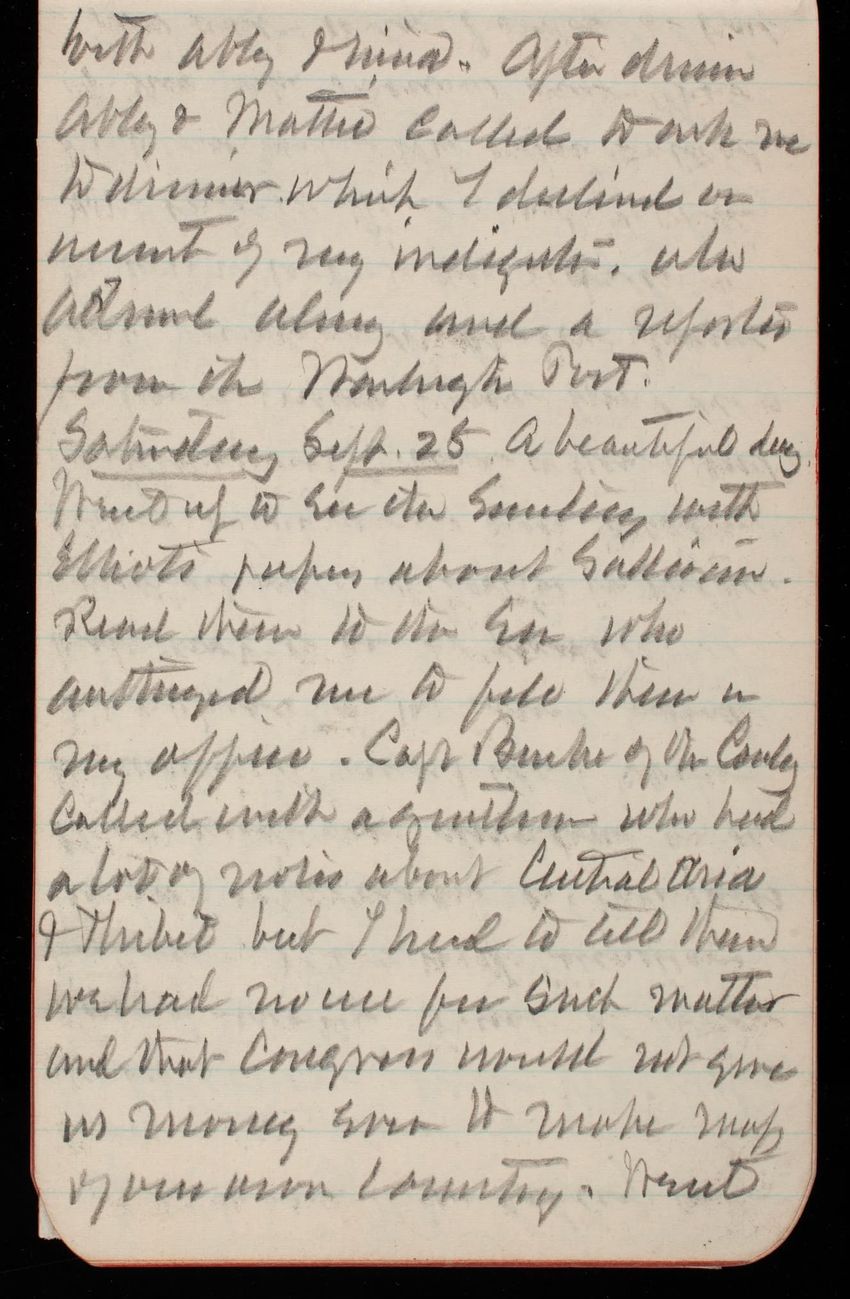 with Abby & Nina. After dinner
Abby & Mattie called to ask me
to dinner which I declined on
account of my indigestion. also
Admiral along and a reporter
from the Washington Post.
Saturday Sept. 25 A beautiful day.
Went up to see the Secretary with
Elliots papers about
Read them to the Sec who
authorized me to file them in
my office. Capt Bourke of the Cavly
called with a gentleman who had
a lot of notes about Central Asia
& Thibet but I had to tell them
we had no use for such matter
and that Congress would not give
us money even to make maps
of our own country. Went